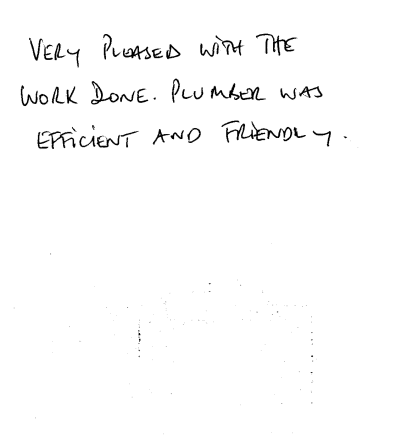 VERY PLEASED WITH THE
WORK DONE. PLUMBER WAS
EFFICIENT AND FRIENDLY.